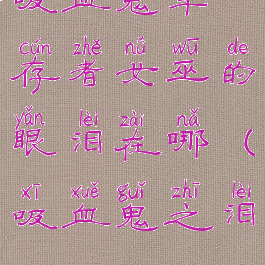 吸血鬼幸
cún zhě nǚ wū de
存者女巫的
yǎn lèi zài nǎ
眼泪在哪（
xī xuě guǐ zhī lèi
吸血鬼之泪